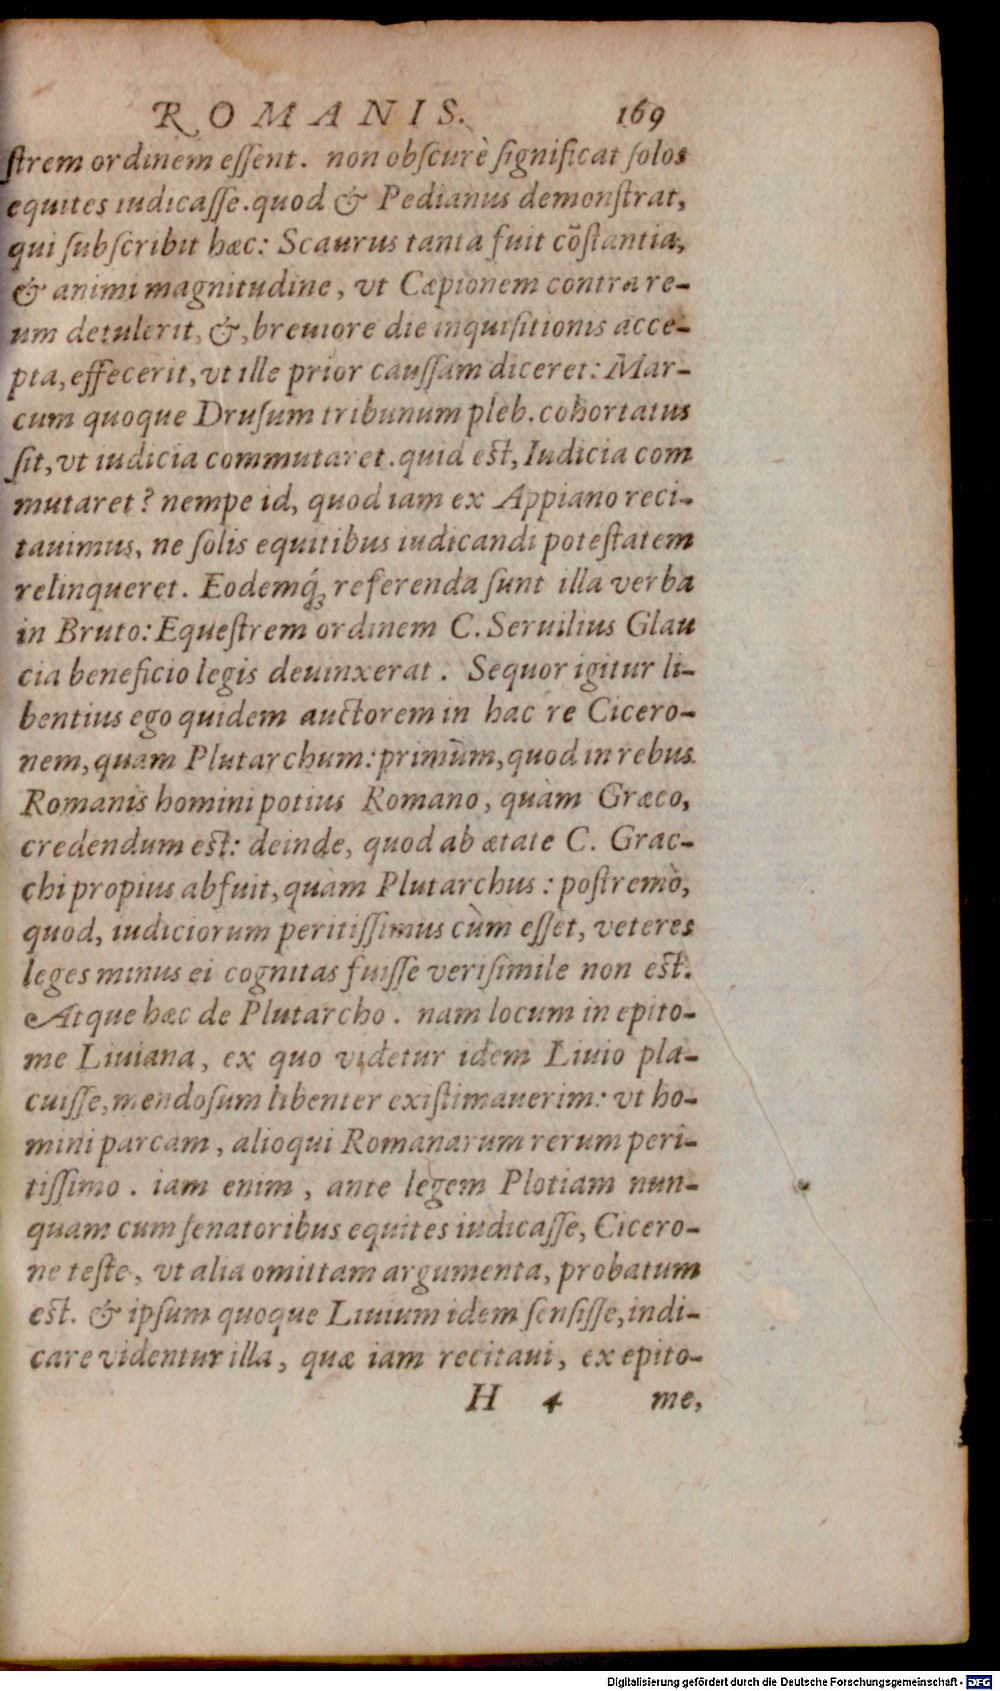 ROMANIS. 169
ſtrem ordinem eſſent. non obſcurè ſignificat ſolos
equites iudicaſſe. quod & Pedianus demonſtrat,
qui ſubſcribit hæc: Scaurus tanta fuit cõſtantia,
& animi magnitudine, vt Cæpionem contra re-
um detulerit, &, breuiore die inquiſitionis acce-
pta, effecerit, vt ille prior cauſſam diceret: Mar-
cum quoque Druſum tribunum pleb. cohortatus
ſit, vt iudicia commutaret. quid eſt, Iudicia com
mutaret? nempe id, quod iam ex Appiano reci-
tauimus, ne ſolis equitibus iudicandi poteſtatem
relinqueret. Eodemq́; referenda ſunt illa verba
in Bruto: Equeſtrem ordinem C. Seruilius Glau
cia beneficio legis deuinxerat. Sequor igitur li-
bentius ego quidem auctorem in hac re Cicero-
nem, quam Plutarchum: primùm, quod in rebus
Romanis homini potius Romano, quàm Græco,
credendum eſt: deinde, quod ab ætate C. Grac-
chi propius abfuit, quàm Plutarchus: poſtremò,
quod, iudiciorum peritiſſimus cùm eſſet, veteres
leges minus ei cognitas fuiſſe veriſimile non eſt.
Atque hæc de Plutarcho. nam locum in epito-
me Liuiana, ex quo videtur idem Liuio pla-
cuiſſe, mendoſum libenter exiſtimauerim: vt ho-
mini parcam, alioqui Romanarum rerum peri-
tiſſimo. iam enim, ante legem Plotiam nun-
quam cum ſenatoribus equites iudicaſſe, Cicero-
ne teſte, vt alia omittam argumenta, probatum
eſt. & ipſum quoque Liuium idem ſenſiſſe, indi-
care videntur illa, quæ iam recitaui, ex epito-
H 4 me,
Digitalisierung gefördert durch die Deutsche Forschungsgemeinschaft - DFG